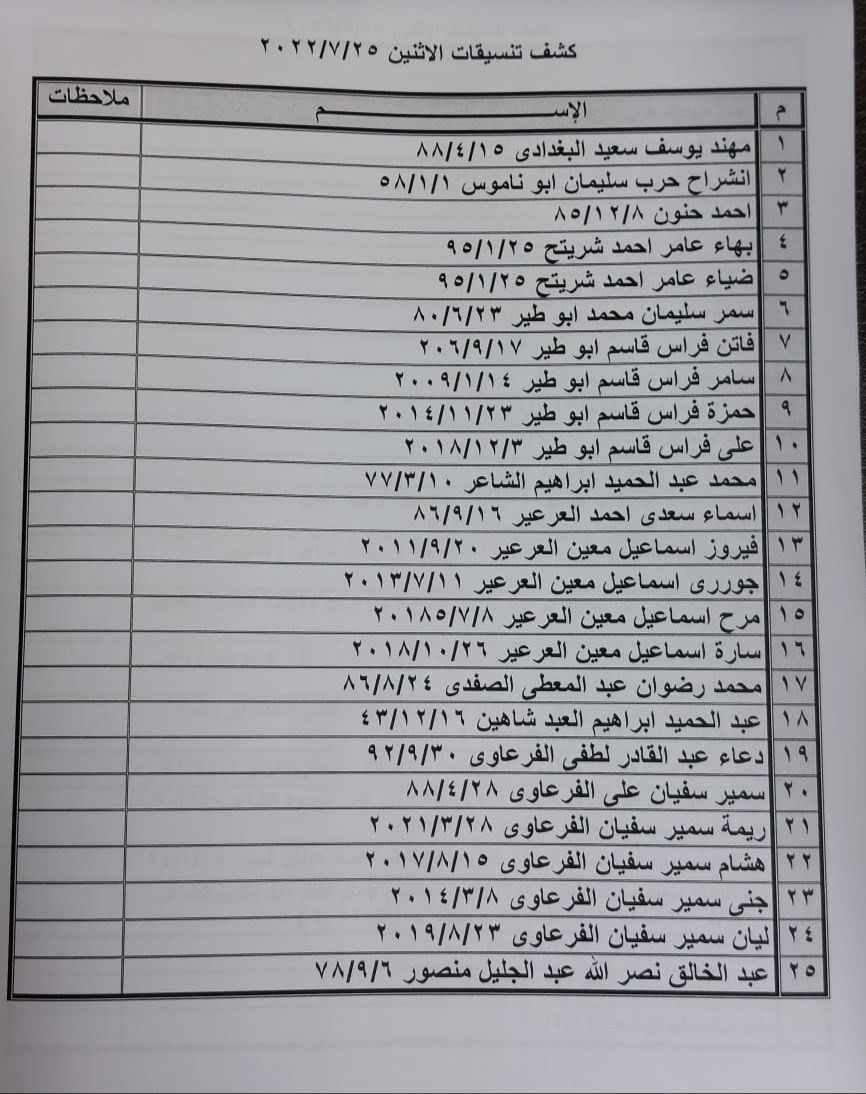 كشف تنسيقات الاثنين ٢٠٢٢/٧/٢٥
م الإســـــــــــــم ملاحظات
١ مهند يوسف سعيد البغدادى ٨٨/٤/١٥
٢ انشراح حرب سليمان ابو ناموس ٥٨/١/١
٣ احمد حنون ٨٥/١٢/٨
٤ بهاء عامر احمد شريتح ٩٥/١/٢٥
٥ ضياء عامر احمد شريتح ٩٥/١/٢٥
٦ سمر سليمان محمد ابو طير ٨٠/٦/٢٣
٧ فاتن فراس قاسم ابو طير ٢٠٦/٩/١٧
٨ سامر فراس قاسم ابو طير ٢٠٠٩/١/١٤
٩ حمزة فراس قاسم ابو طير ٢٠١٤/١١/٢٣
١٠ على فراس قاسم ابو طير ٢٠١٨/١٢/٣
١١ محمد عبد الحميد ابراهيم الشاعر ٧٧/٣/١٠
١٢ اسماء سعدى احمد العرعير ٨٦/٩/١٦
١٣ فيروز اسماعيل معين العرعير ٢٠١١/٩/٢٠
١٤ جوررى اسماعيل معين العرعير ٢٠١٣/٧/١١
١٥ مرح اسماعيل معين العرعير ٢٠١٨٥/٧/٨
١٦ سارة اسماعيل معين العرعير ٢٠١٨/١٠/٢٦
١٧ محمد رضوان عبد المعطى الصفدى ٨٦/٨/٢٤
١٨ عبد الحميد ابراهيم العبد شاهين ٤٣/١٢/١٦
١٩ دعاء عبد القادر لطفى الفرعاوى ٩٢/٩/٣٠
٢٠ سمير سفيان على الفرعاوى ٨٨/٤/٢٨
٢١ ريمة سمير سفيان الفرعاوى ٢٠٢١/٣/٢٨
٢٢ هشام سمير سفيان الفرعاوى ٢٠١٧/٨/١٥
٢٣ جنى سمير سفيان الفرعاوى ٢٠١٤/٣/٨
٢٤ ليان سمير سفيان الفرعاوى ٢٠١٩/٨/٢٣
٢٥ عبد الخالق نصر الله عبد الجليل منصور ٧٨/٩/٦